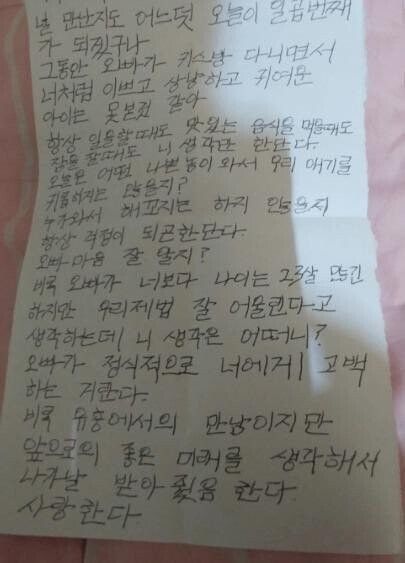 널 만난지도 어느덧 오늘이 일곱번째
가 되겠구나
그동안 오빠가 키스방 다니면서
너처럼 이쁘고 상냥하고 귀여운
아이는 못본것 같아
항상 일을할때도 맛있는 음식을 먹을때도
잠을 잘때도 니 생각만 한단다.
오늘은 어떤 나쁜놈이 와서 우리 애기를
괴롭히지는 않을지?
누가와서 해꼬지는 하지 않을지
항상 걱정이 되곤한단다.
오빠마음 잘 알지?
비록 오빠가 너보다 나이는 23살 많긴
하지만 우리제법 잘 어울린다고
생각하는데 니 생각은 어떠니?
오빠가 정식적으로 너에게 고백
하는 거란다.
비록 유흥에서의 만남이지만
앞으로의 좋은 미래를 생각해서
나가날 받아줬음 한다
사랑한다.